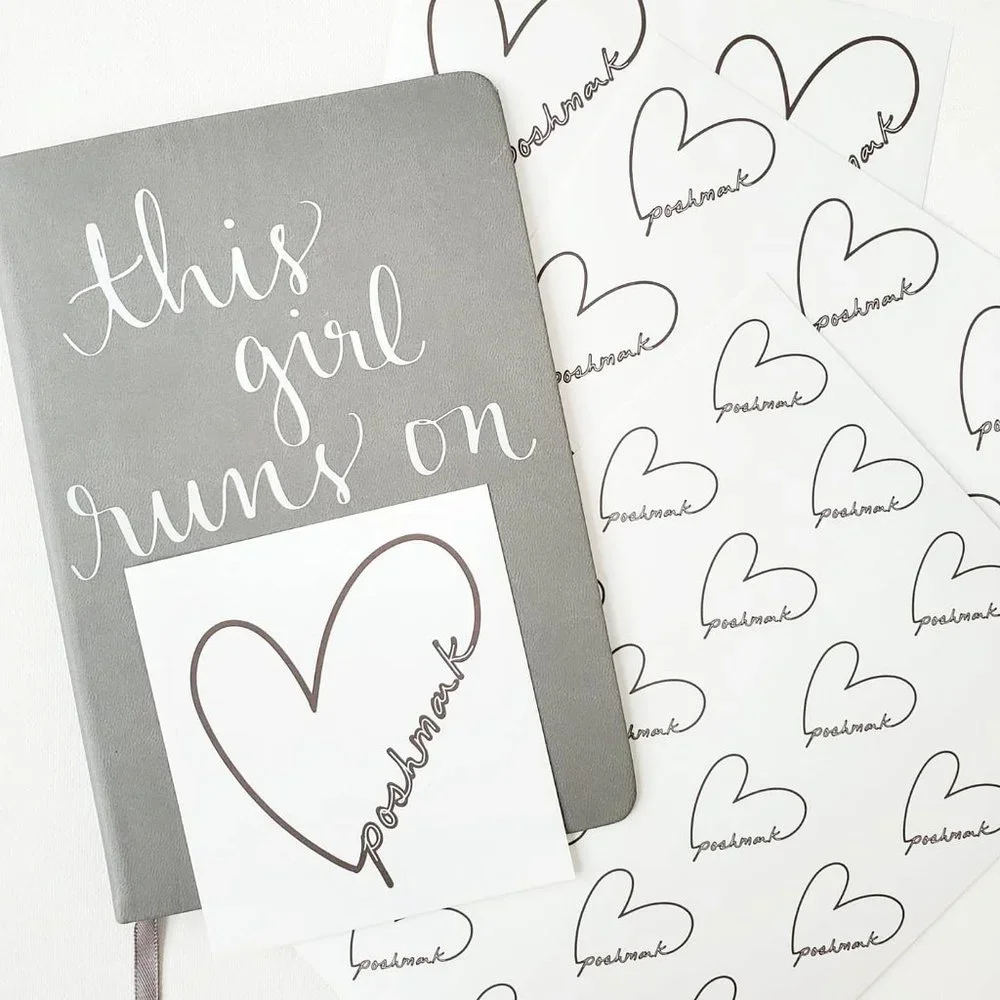 this
girl
runs on
poshmark
poshmark
ark
poshmark
poshmark
poshmark
poshmark
po
poshmark
poshmark
poshmark
poshmark
hmark
poshmark
poshmark
poshmark
poshmark
poshmark
poshmark